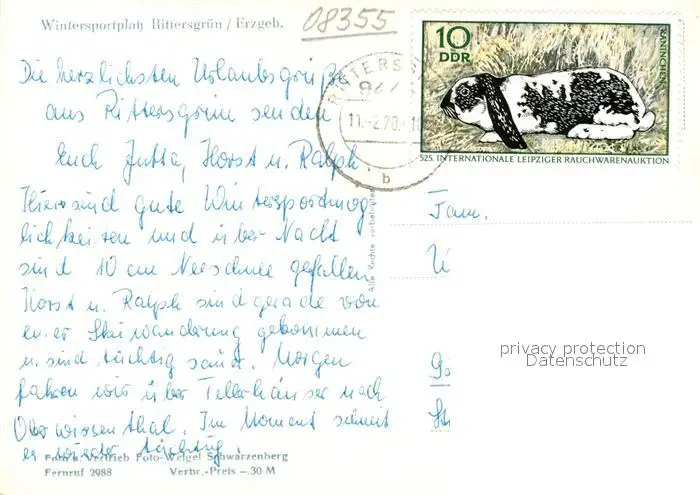 Wintersportplatz Rittersgrün / Erzgeb.
08355
10
DDR
KANINCHEN
525. INTERNATIONALE LEIPZIGER RAUCHWARENAUKTION
RITTERSG
944
11.-2.70.-1
b
Die herzlichsten Urlaubsgrüße
aus Rittersgrün senden
Euch Jutta, Horst u. Ralph.
Hier sind gute Wintersportmög
lichkeiten und über Nacht
sind 10 cm Neuschnee gefallen
Horst u. Ralph sind gerade von
einer Skiwanderung gekommen
u. sind tüchtig
Morgen
fahren wir über Tellerhäuser nach
Oberwiesenthal. Im Moment schneit
es wieder tüchtig.
Alle Rechte vorbehalten
Fam.
privacy protection
Datenschutz
Foto u. Vertrieb Foto-Weigel Schwarzenberg
Fernruf 2988 Verbr.-Preis -.30 M